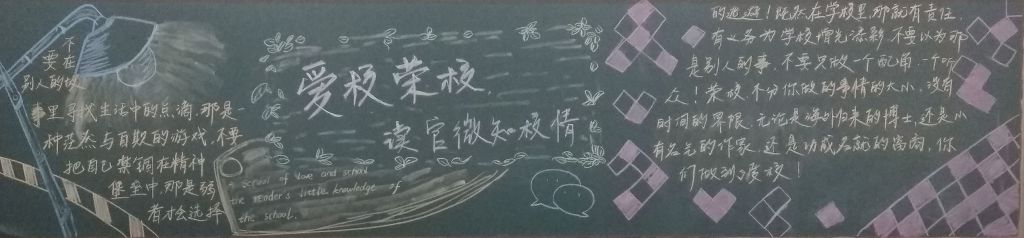 不
要在
别人的故
事里寻找生活中的点滴,那是一
种茫然与自欺的游戏,不要
把自己禁锢在精神
堡垒中,那是弱
者才会选择
爱校荣校.
读官微知校情
school of love and school
the reader's little knowledge of
the school.
的逃避!既然在学校里,那就有责任,
有义务为学校增光添彩,不要以为那
是别人的事,不要只做一个配角,一个听
众!荣校不分你做的事情的大小,没有
时间的界限,无论是海归来的博士,还是小
有名气的作家,还是功成名就的高商,你
们做到了爱校!